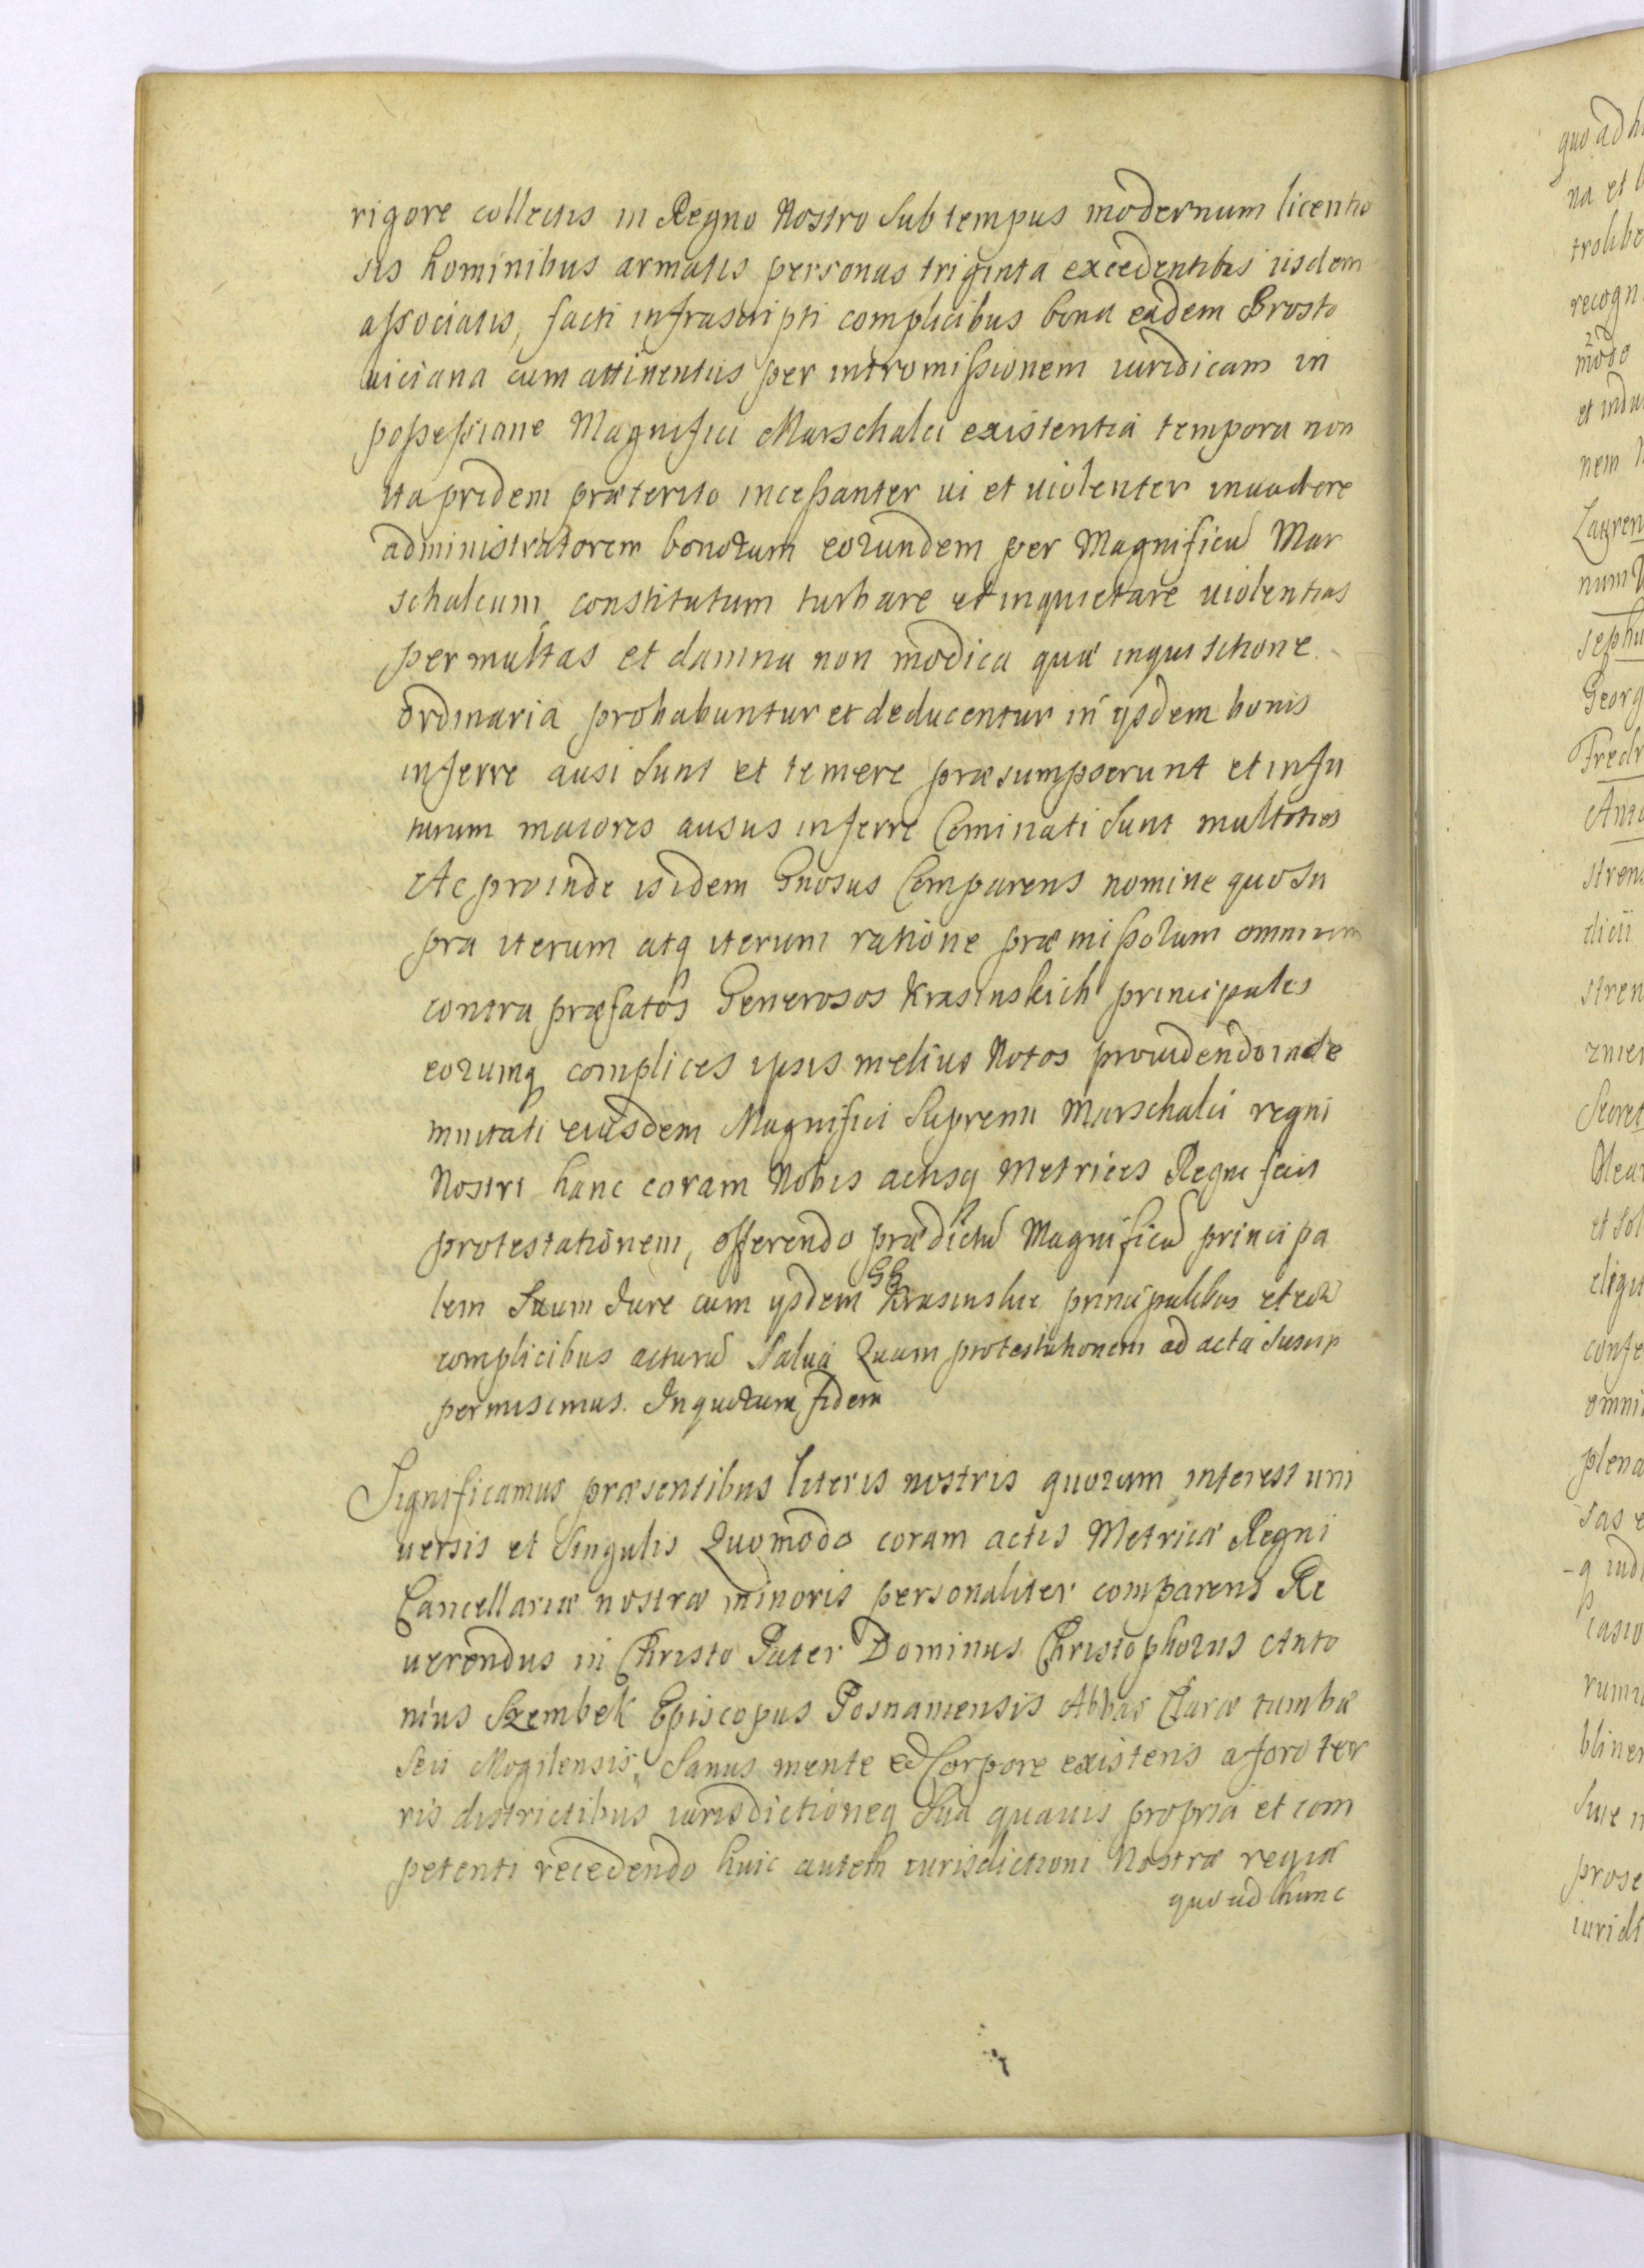 rigore collectis in Regno Nostro sub tempus modernum licentio
sis hominibus armatis personas triginta excedentibus iisdem
associatis, facti infrascripti complicibus bona eadem Brosto
viciana cum attinentiis per intromissionem iuridicam in
possessione Magnifici Marschalci existentia tempora non
ita pridem præterito incessanter vi et violenter invadere
administratorem bonorum eorundem per Magnificū Mar
schalcum constitutum turbare et inquietare violentias
permultas et damna non modica quæ inquisitione
ordinaria probabuntur et deducentur in ysdem bonis
inferre ausi sunt et temere præsumpserunt et infu
turum maiores ausus inferre Cominati sunt multoties
Ac proinde isidem Gnosus Comparens nomine quo su
pra iterum atq iterum ratione præmissorum omnium
contra præfatos Generosos Krasinskich principales
eorumq complices ipsis melius Notos providendo inde
mnitati eiusdem Magnifici Supremi Marschalci regni
Nostri hanc coram Nobis actisq Metrices Regni fecit
protestationem, offerendo prædictū Magnificū principa
lem Suum Jure cum ysdem GG Krasinskie principalibus et eor
complicibus acturū Salva Quam protestationem ad acta suscip
permisimus. In quorum fidem
Significamus præsentibus literis nostris quorum interest uni
versis et Singulis Quomodo coram actis Metricæ Regni
Cancellariæ nostræ minoris personaliter comparens Re
verendus in Christo Pater Dominus Christophorus Anto
nius Szembek Episcopus Posnaniensis Abbas Claræ tumbæ
seu Mogilensis, Sanus mente et Corpore existens a foro ter
ris districtibus iurisdictioneq Sua quavis propria et com
petenti recedendo huic autem iurisdictioni Nostræ regiæ
quo ad hunc
quo ad h
na et
trolibe
recogn
modo
et indu
nem
Lauren
num
seph
Georg
Fredr
stren
dicii
stren
Secret
et sol
eligit
confe
omni
plena
sas e
prose
iuridi